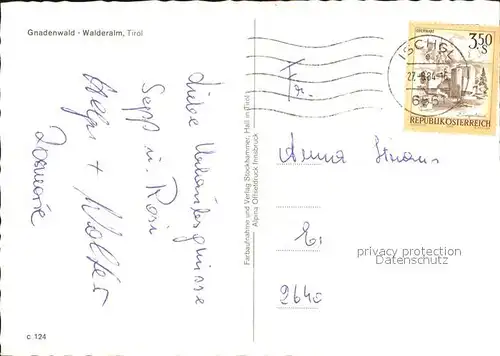 Gnadenwald - Walderalm, Tirol
Liebe Urlaubsgrüsse
Sepp u. Rosi
Helga + Walter
c 124
Farbaufnahme und Verlag Stockhammer, Hall in Tirol
Alpina Offsetdruck Innsbruck
ISCHGL
27.
84
3.50
S
REPUBLIK ÖSTERREICH
Anna
privacy protection
Datenschutz
2640